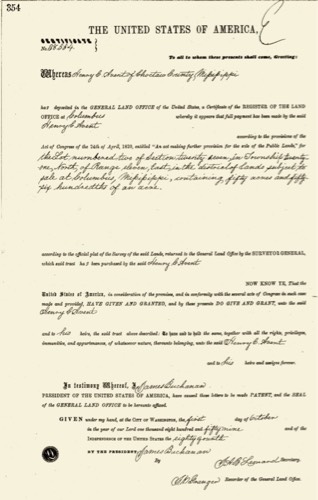 354
THE UNITED STATES OF AMERICA,
CERTIFICATE
To all to whom these presents shall come, Greeting:
Whereas Henry C Avent of Choctaw County, Mississippi
has deposited in the GENERAL LAND OFFICE of the United States, a Certificate of the REGISTER OF THE LAND
OFFICE at Columbus whereby it appears that full payment has been made by the said
Henry C Avent according to the provisions of the
Act of Congress of the 24th of April, 1820, entitled "An act making further provision for the sale of the Public Lands," for
the Lot numbered two of Section twenty seven in Township twenty
one, North, of Range eleven, East, in the district of lands subject to
sale at Columbus, Mississippi, containing fifty acres and fifty
six hundredths of an acre.
according to the official plat of the Survey of the said Lands, returned to the General Land Office by the SURVEYOR GENERAL,
which said tract has been purchased by the said Henry C Avent
NOW KNOW YE, That the
United States of America, in consideration of the premises, and in conformity with the several acts of Congress in such case
made and provided, HAVE GIVEN AND GRANTED, and by these presents DO GIVE AND GRANT, unto the said
Henry C Avent
and to his heirs, the said tract above described: To have and to hold the same, together with all the rights, privileges,
immunities, and appurtenances, of whatsoever nature, thereunto belonging, unto the said Henry C Avent
and to his heirs and assigns forever.
In testimony Whereof, I, James Buchanan
PRESIDENT OF THE UNITED STATES OF AMERICA, have caused these letters to be made PATENT, and the SEAL
of the GENERAL LAND OFFICE to be hereunto affixed.
GIVEN under my hand, at the CITY OF WASHINGTON, the first day of October
in the year of our Lord one thousand eight hundred and fifty nine and of the
INDEPENDENCE OF THE UNITED STATES the eighty fourth
BY THE PRESIDENT: James Buchanan
By Secretary.
Recorder of the General Land Office.